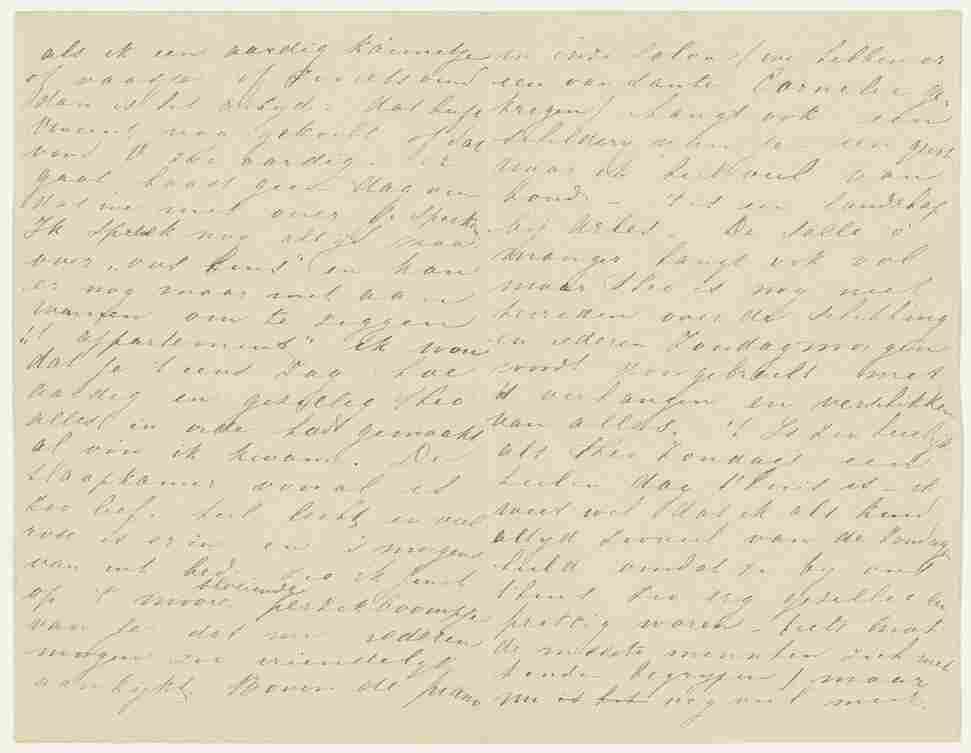 als ik een aardig kannetje
of vaasje of zoo iets vind
dan is het altyd: dat heeft
Vincent nog gekocht of dat
vond V zoo aardig. Er
gaat haast geen dag om
dat we niet over je spreken
Ik spreek nog altyd maar
over „ons huis" en kan
er nog maar niet aan
wennen om te zeggen
„appartement" Ik wou
dat je 't eens zag hoe
aardig en gezellig Theo
alles in orde had gemaakt
al vóór ik kwam. De
slaapkamer vooral is
zoo lief. heel licht en veel
rose is er in en 's morgens
van uit bed zie ik juist
op 't mooie bloeiende perzikboompje
van je dat me iederen
morgen zoo vriendelyk
aankykt. Boven de piano
in onze salon (we hebben er
een van tante Cornelie ge-
kregen) hangt ook een
schildery van je – een groot
waar ik heel veel van
houd – 't is een landschap
by Arles. De salle à
manger hangt ook vol
maar Theo is nog niet
tevreden over de schikking
en iederen Zondagmorgen
wordt doorgebracht met
't verhangen en verschikken
van alles. 't Is zoo heerlyk
als Theo Zondags een
heelen dag thuis is – ik
weet wel dat ik als kind
altyd zooveel van de Zondag
hield omdat ze by ons
thuis zoo erg gezellig en
prettig waren – iets wat
de meeste menschen zich niet
konden begrypen / maar
nu is het nog veel meer.